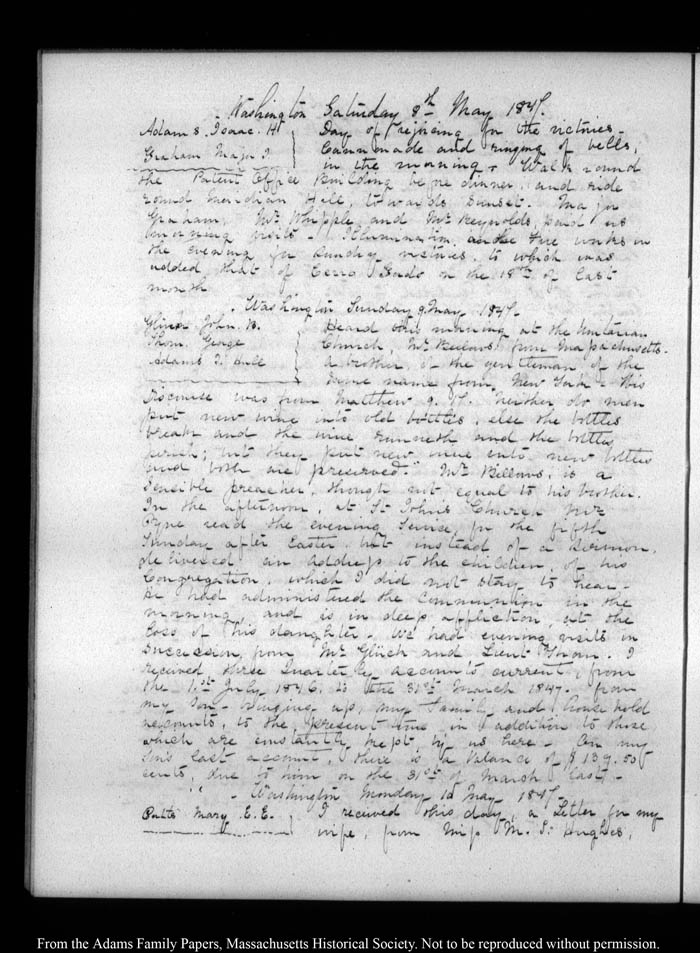 Washington Saturday 8th May 1847.
Adams. Isaac. H
Graham Major J.
Day of rejoicing for the victories –
Cannonade and ringing of bells,
in the morning – Walk round
the Patent Office Building before dinner, and ride
round Meridian Hill, towards Sunset. Major
Graham, Mr Whipple and Mr Reynolds, paid us
morning visits – Illumination, and Fire works in
the evening for Sundry victories, to which was
added that of Cerro Gordo on the 18th of last
month
Washington Sunday 9. May 1847.
John. B.
Thom. George
Adams I. Hull
Heard this morning at the Unitarian
Church Mr Bellows, from Massachusetts.
a brother, of the gentleman of the
same name from New York – His
discourse was from Matthew 9. 17. "Neither do men
put new wine into old bottles, else the bottles
break and the wine runneth and the bottles
perish; but they put new wine into new bottles
and both are preserved." Mr Bellows, is a
sensible preacher, though not equal to his brother.
In the afternoon, at St Johns Church Mr
Pyne read the evening Service, for the fifth
Sunday after Easter. but instead of a Sermon,
delivered an address to the children, of his
Congregation, which I did not stay to hear –
he had administered the Communion in the
morning, and is in deep affliction, at the
loss of his daughter – We had evening visits in
Succession, from Mr and Lieut Thom. I
received three Quarterly accounts current, from
the 1st July 1846. to the 31st March 1847. from
my Son – bringing up, my family, and household
accounts, to the present time in addition to those
which are constantly kept, by us here – On my
Son's last account, there is a balance of $139.50
cents, due to him on the 31st of March last –
Washington Monday 10 May 1847.
Mary. E. E.
I received this day, a Letter for my
wife, from Miss M. Hughes,
From the Adams Family Papers, Massachusetts Historical Society. Not to be reproduced without permission.